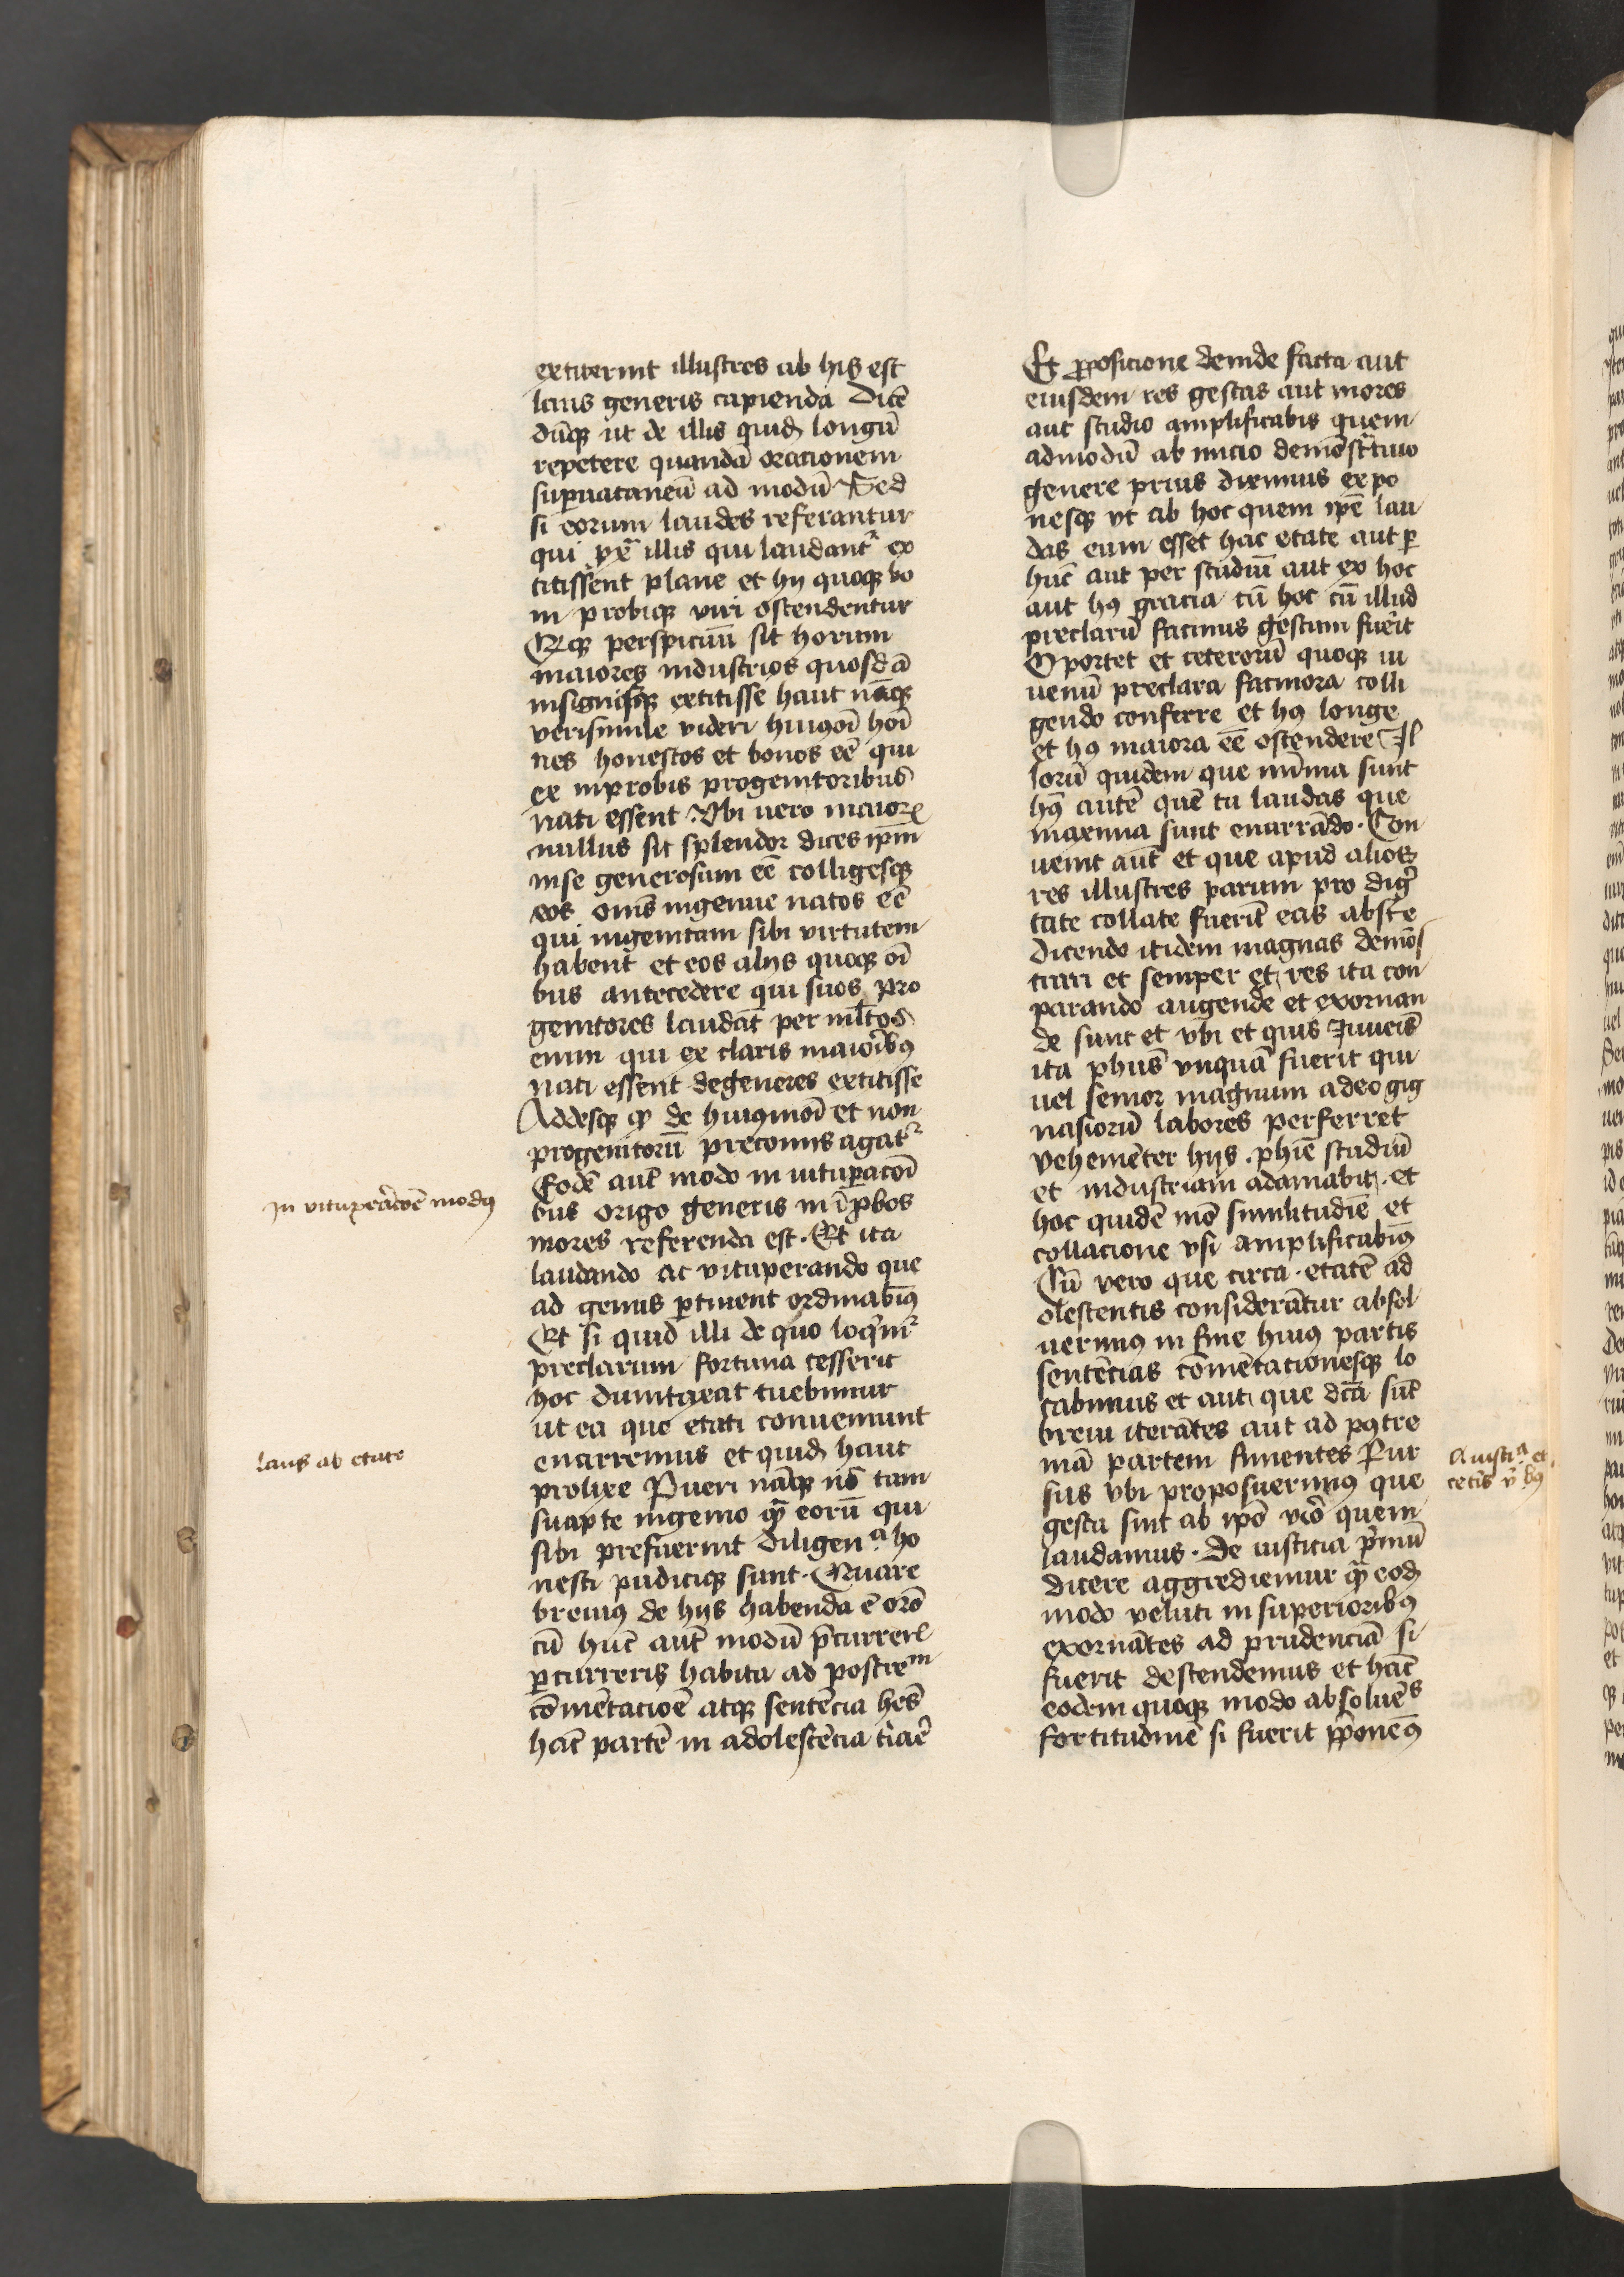 extiterint illustres ab his est
laus generis capienda Dicē
dūq; ut de illis quidē longū
repetere quandā oracionem
supuacaneū ad modū Sed
si eorum laudes referantur
qui illis qui laudant᷑ ex
titissent plane et hij quoq; bo
ni probiq; viri ostendentur
Atq; perspicuū sit horum
maiores industrios quosdā
insignisq; extitisse haut nāq;
verisimile videri huiꝰōi hōi
nes honestos et bonos eē qui
ex inprobis progenitoribus
nati essent Vbi uero maiorꝫ
nullus sit splendor dices ip̄m
inse generosum eē colligesq;
eos om̄s ingenue natos eē
qui ingenitam sibi virtutem
habent et eos alijs quoq; oī
bus antecedere qui suos pro
genitores laudāt per ml̄tos
enim qui ex claris maioribꝰ
nati essent degeneres extitisse
Addesq; ꝙ de huiꝰmōi et non
progenitorū preconijs agat᷑
Eodē aut̄ modo in vituꝑacōi
bus origo generis in īꝓbos
mores referenda est. Et ita
laudando ac vituperando que
ad genus ꝑtinent ordinabimꝰ
Et si quid illi de quo loqͥm᷑
preclarum fortuna cesserit
hoc dumtaxat tuebimur
ut ea que etati conueniunt
enarremus et quidē haut
prolixe Pueri nāq; nō tam
suapte ingenio qͣ̄ eorū qui
sibi prefuerint diligenᵃ ho
nesti pudiciq; sunt. Quare
breuiꝰ de hijs habenda ē orō
cū hūc aut̄ modū ꝑcurrerꝫ
ꝑcurreris habita ad postreᵐ
cōmētacioē atq; sentēcia hēs
hāc partē in adolescēcia

In vituperacōē modꝰ

laus ab etate

Et ꝓposicione deinde facta aut
eiusdem res gestas aut mores
aut studio amplificabis quem
admodū ab inicio demōstͣtiuo
genere prius diximus expo
nesq; vt ab hoc quem ip̄e lau
das eum esset hac etate aut ꝑ
hūc aut per studiū aut ex hoc
aut hꝰ gracia cū hoc cū illud
preclarū facinus gestum fuerit
Oportet et ceterorū quoq; iu
uenū preclara facinora colli
gendo conferre et hꝰ longe
et hꝰ maiora eē ostendere Il
lorū quidem que mīma sunt
hꝰ autē quē tu laudas que
maxima sunt enarrādo. Con
uenit aut̄ et que apud alios
res illustres parum pro digͥ
tate collate fuerīt eas abstͥe
dicendo itidem magnas demōs
trari et semper et res ita con
parando augende et exornan
de sunt et vbi et quis Iuueīs
ita ph̄us vnquā fuerit qui
uel senior magnum adeo gig
nasiorū labores perferret
vehemēter hijs. ph̄ie studiū
et industriam adamabit. et
hoc quidē mō similitudīe et
collacione vsi amplificabimꝰ
Cū vero que circa. etatē ad
olescentis considerātur absol
uerimꝰ in fine huiꝰ partis
sentēcias cōmētacionesq; lo
cabimus et aut que dcā sūt
breui iterātes aut ad pꝰtre
mā partem finientes Rur
sus vbi proposuerimꝰ que
gesta sint ab ip̄o viro quem
laudamus. De iusticia pͥmū
dicere aggrediemur qͣ̄ eodē
modo veluti in superioribꝰ
exornātes ad prudenciā si
fuerit descendemus et hāc
eodem quoq; modo absoluētˢ
fortitudinē si fuerit ꝓponemꝰ

A iustiᵃ et
ceteris vͥbꝰ